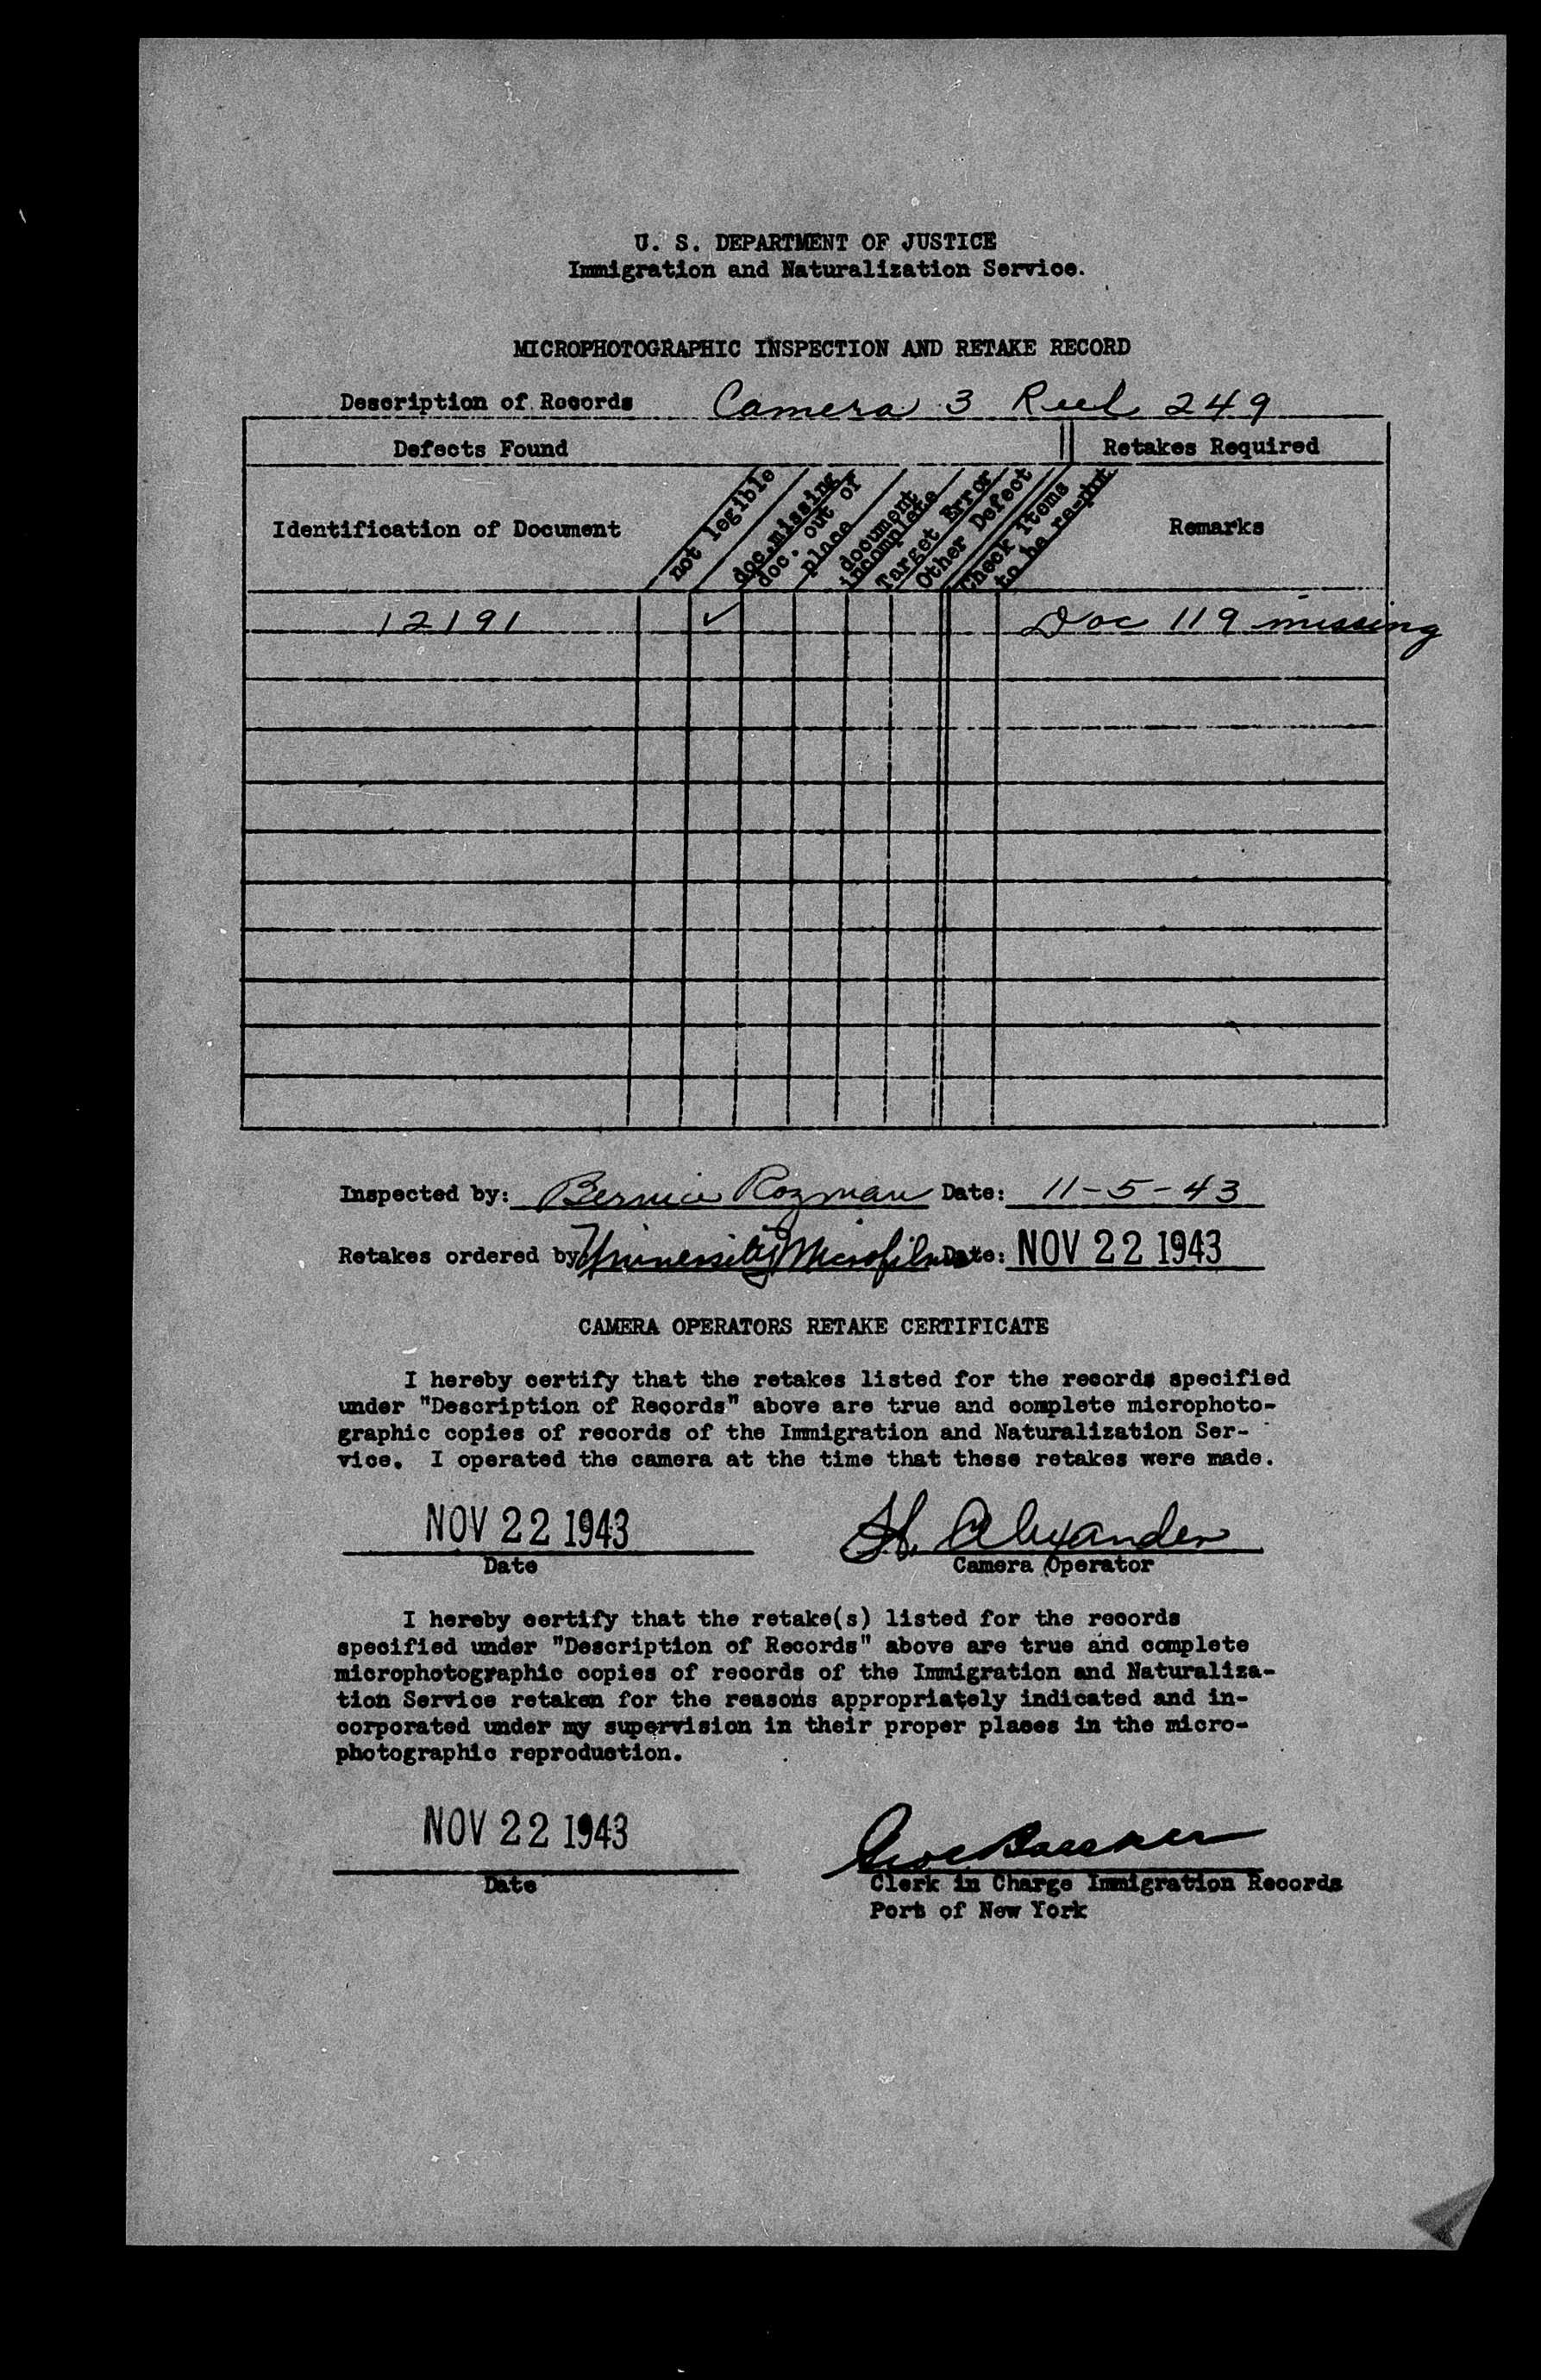 U. S. DEPARTMENT OF JUSTICE
Immigration and Naturalization Service.
MICROPHOTOGRAPHIC INSPECTION AND RETAKE RECORD
Description of Records Camera 3 Reel 249
Defects Found Retakes Required
Identification of Document not legible doc. missing doc. out of place document incomplete Target Error Other Defect Check items to be re-phot Remarks
12191 ✓ Doc 119 missing
Inspected by: Bernice Rozman Date: 11-5-43
Retakes ordered by University Microfilms Date: NOV 22 1943
CAMERA OPERATORS RETAKE CERTIFICATE
I hereby certify that the retakes listed for the records specified
under "Description of Records" above are true and complete microphoto-
graphic copies of records of the Immigration and Naturalization Ser-
vice. I operated the camera at the time that these retakes were made.
NOV 22 1943 H. Alexander
Date Camera Operator
I hereby certify that the retake(s) listed for the records
specified under "Description of Records" above are true and complete
microphotographic copies of records of the Immigration and Naturaliza-
tion Service retaken for the reasons appropriately indicated and in-
corporated under my supervision in their proper places in the micro-
photographic reproduction.
NOV 22 1943
Date Clerk in Charge Immigration Records
Port of New York